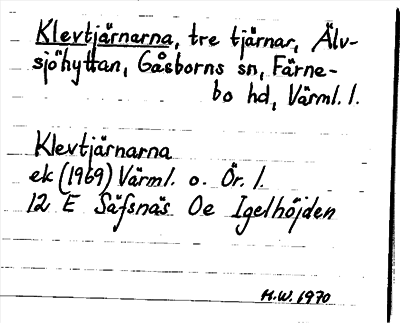 Klevtjärnarna, tre tjärnar, Älv-
sjöhyttan, Gåsborns sn, Färne-
bo hd, Värml. l.
Klevtjärnarna
ek (1969) Värml. o. Ör. l.
12 E Säfsnäs Oe Igelhöjden
H.W. 1970